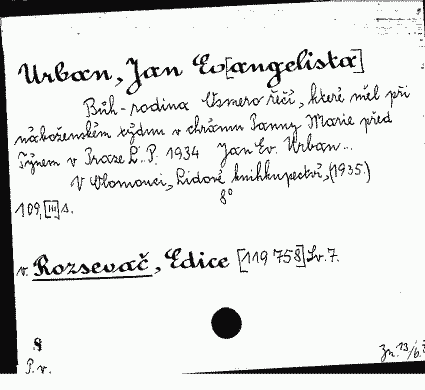 Urban, Jan Ev[angelista]
Bůh - rodina Osmero řečí, které měl při
náboženském týdnu v chrámu Panny Marie před
Týnem v Praze L. P. 1934 Jan Ev. Urban...
V Olomouci, Lidové knihkupectví, (1935.)
8°
109, [III] s.
v. Rozsevač, Edice [119758] Sv. 7.
§
P. v.
Zn. 13/6.